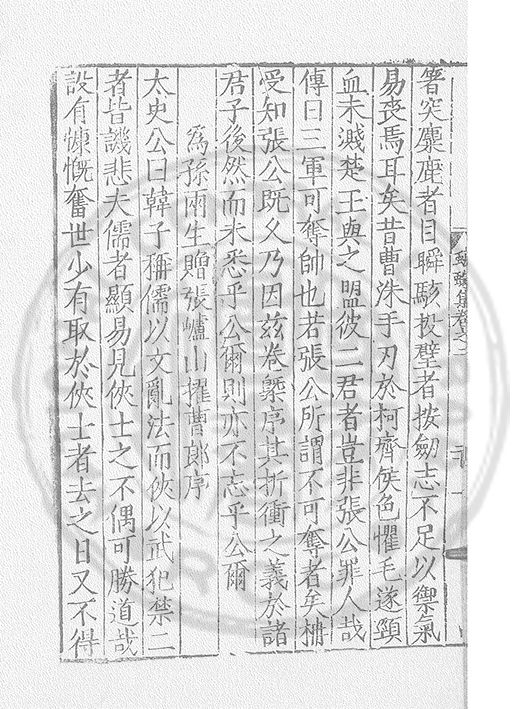 箸突麋鹿者目瞬駭投壁者按劒志不足以禦氣
易喪焉耳矣昔曹沬手刃於柯齊侯色懼毛遂頸
血未濺楚王與之盟彼二君者豈非張公罪人哉
傳曰三軍可奪帥也若張公所謂不可奪者矣柟
受知張公既久乃因茲卷槩序其折衝之義於諸
君子後然而未悉乎公爾則亦不忘乎公爾
爲孫兩生贈張嶁山擢曹郎序
太史公曰韓子稱儒以文亂法而俠以武犯禁二
者皆譏悲夫儒者顯易見俠士之不偶可勝道哉
設有慷慨奮世少有取於俠士者去之日又不得